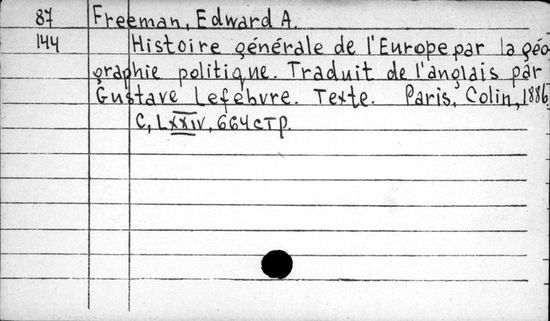 87 Freeman, Edward A.
144 Histoire générale de l'Europe par la géo-
graphie politique. Traduit de l'anglais par
Gustave Lefebvre. Texte. Paris, Colin, 1886.
C, LXXIV, 664 стр.